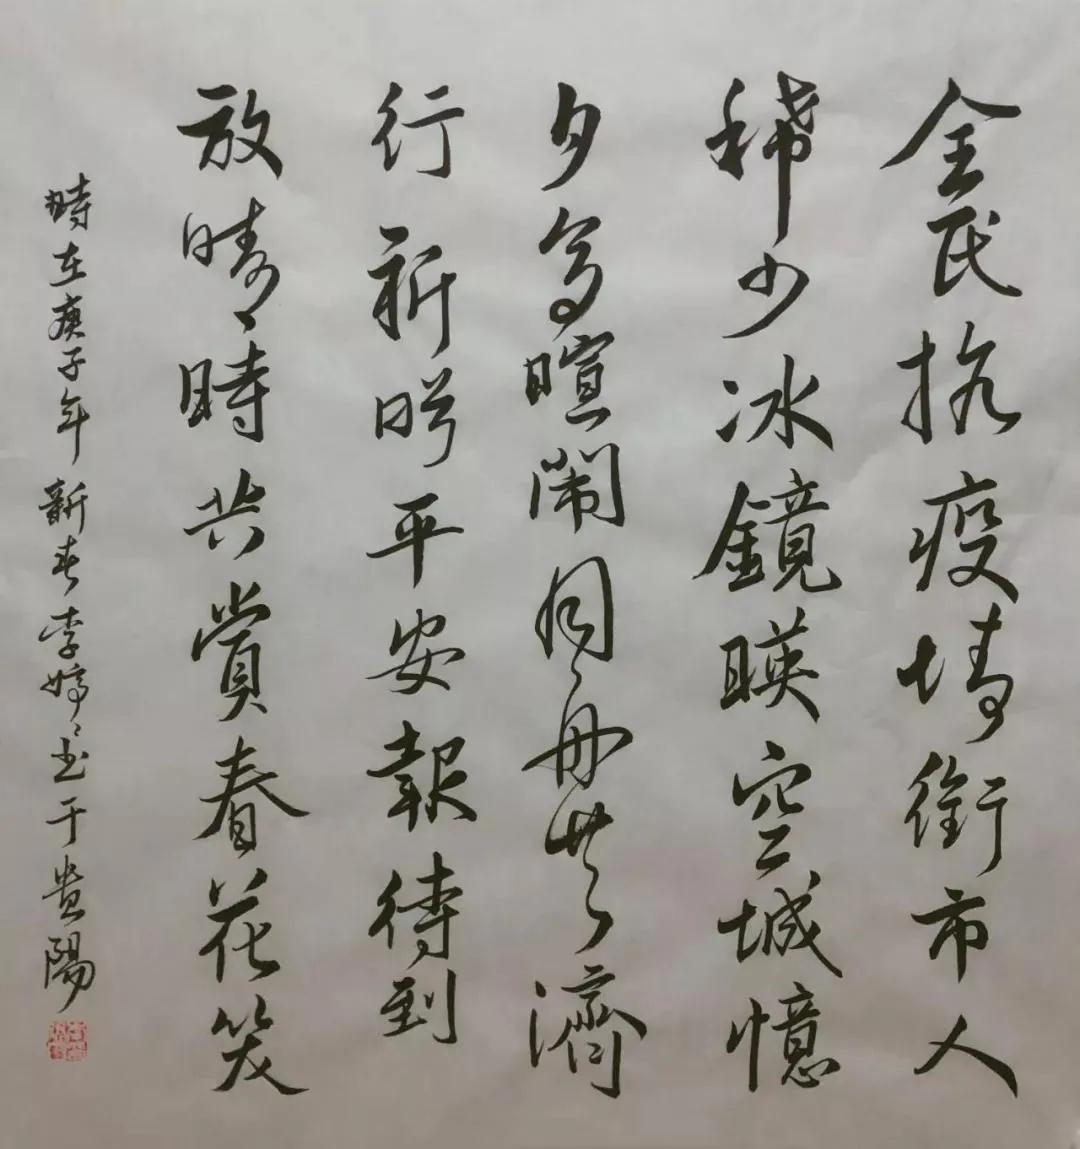 全民抗疫情街市人
稀少冰鏡暎空城憶
夕多暄闹同舟共濟
行祈盼平安報待到
放晴時共賞春花笑
時在庚子年新春李婷々书于貴陽